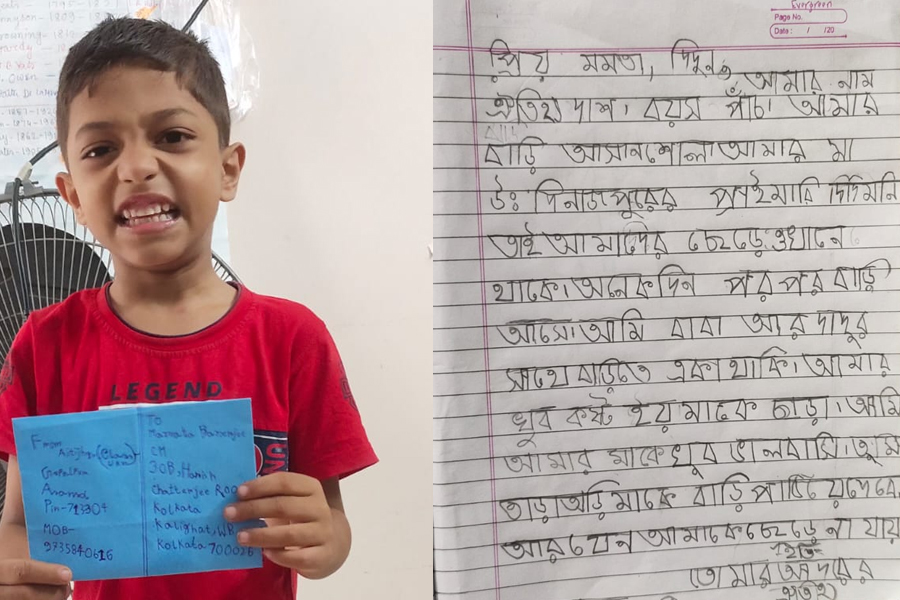 LEGEND
From
Gopalpur
Pin-713304
MOB-
9735840616
To
Mamata Banerjee
CM
30B, Harish
Chatterjee Roa
Kolkata
Kalighat, WB
Kolkata 700026
Evergreen
Page No.
Date: / /20
প্রিয় মমতা, দিদুন
আমার নাম
ঐতিহ্য দাশ। বয়স পাঁচ। আমার
বাড়ি আসানশোল। আমার মা
উঃ দিনাজপুরের প্রাইমারি দিদিমনি
তাই আমাদের ছেড়ে ওখানে
থাকে। অনেক দিন পর পর বাড়ি
আসে। আমি বাবা আর দাদুর
সাথে বাড়িতে একা থাকি। আমার
খুব কষ্ট হয় মাকে ছাড়া। আমি
আমার মাকে খুব ভালবাসি। তুমি
তাড়াতাড়ি মাকে বাড়ি পাঠিয়ে দেবে
আর যেন আমাকে ছেড়ে না যায়
ইতি
তোমার আদরের
ঐতিহ্য